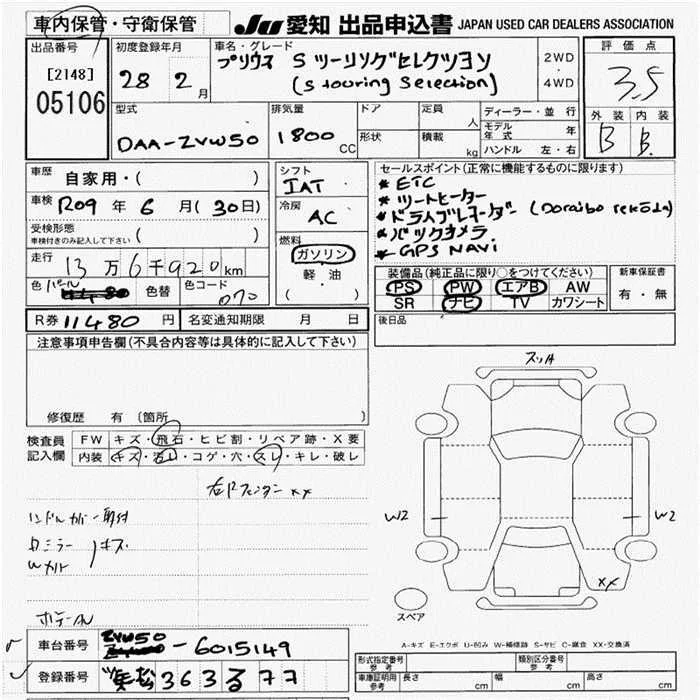 車内保管・守衛保管
JU 愛知 出品申込書 JAPAN USED CAR DEALERS ASSOCIATION
出品番号
[2148]
05106
初度登録年月
28 2月
車名・グレード
プリウス Sツーリングセレクション
(S touring Selection)
2WD
・
4WD
評価点
3.5
外装 内装
B B
型式
DAA-ZVW50
排気量
1800 CC
ドア
形状
定員 人
積載 kg
ディーラー・並行
モデル年式 年
ハンドル 左・右
車歴
自家用・( )
車検 R09年 6月(30日)
受検形態
車検付きのみ記入して下さい ( )
走行
13万6千920km
色 パール 色替 色コード 070
シフト
IAT
冷房
AC
燃料
ガソリン
・
軽・油
( )
セールスポイント(正常に機能するものに限ります)
* ETC
* シートヒーター
* ドライブレコーダー (Doraibo rekōda)
* バックカメラ
* GPS NAVi
装備品(純正品に限り○をつけてください)
PS PW エアB AW
SR ナビ TV カワシート
新車保証書
有・無
後日品
R券 11480円 名変通知期限 月 日
注意事項申告欄(不具合内容等は具体的に記入して下さい)
修復歴 有 (箇所 )
検査員記入欄
FW キズ・飛石・ヒビ割・リペア跡・X要
内装 キズ・汚レ・コゲ・穴・スレ・キレ・破レ
右Fフェンダー XX
ハンドルカバー取付
キズ
スリキ
W2
W2
XX
スペア
A-キズ E-エクボ U-凹み W-補修跡 S-サビ C-腐食 XX-交換済
車台番号 ZVW50-6015149
登録番号 浜松363る77
形式指定番号 参考
類別区分番号 参考
車庫証明用 参考 長さ cm 幅 cm 高さ cm